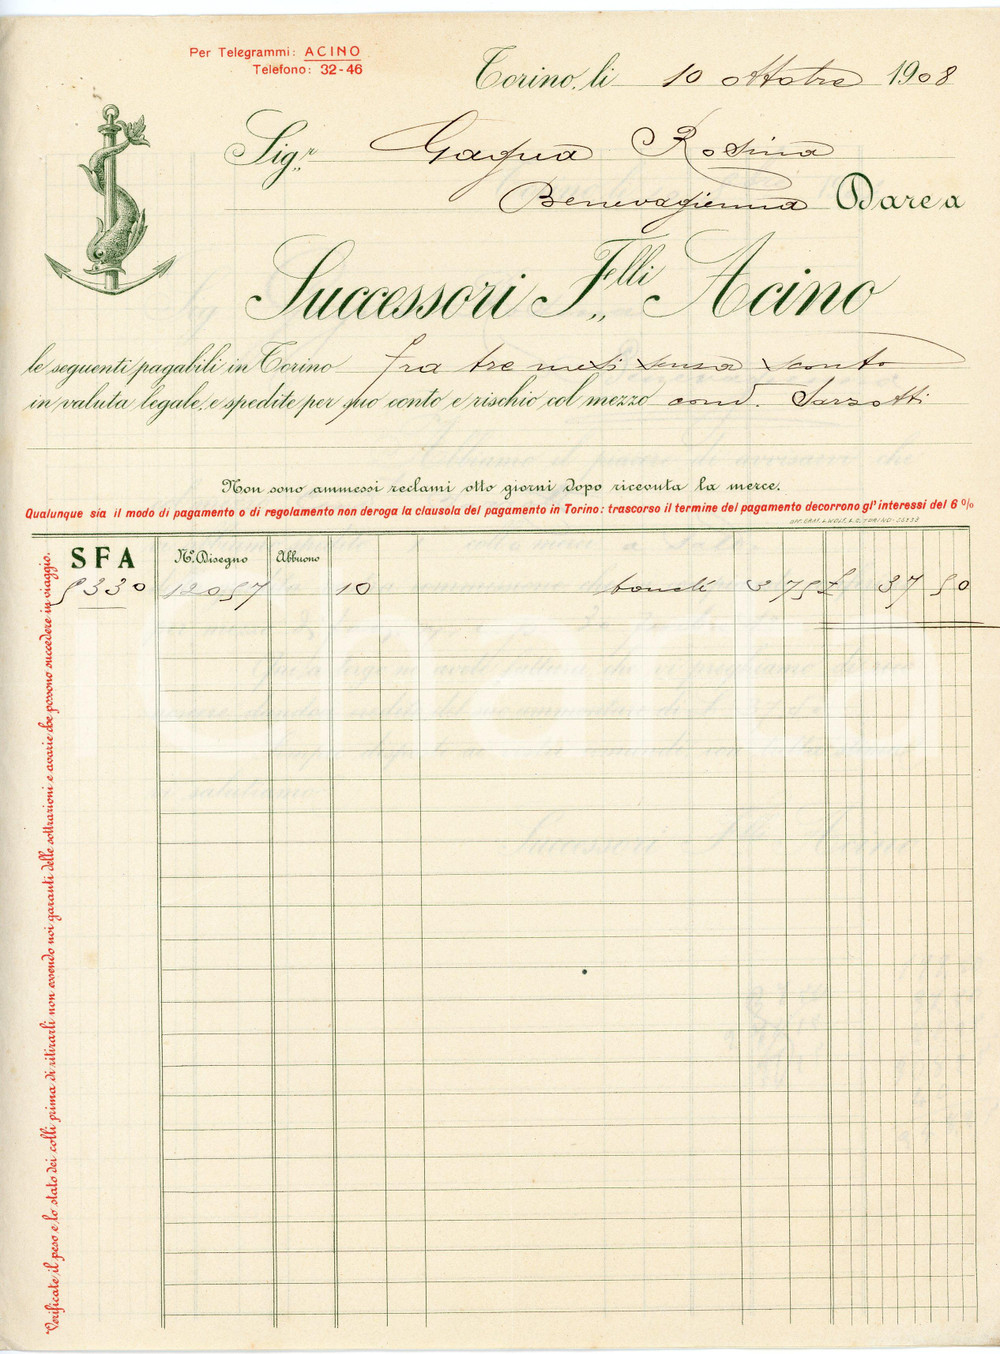 Per Telegrammi: ACINO
Telefono: 32-46
Torino, li 10 ottobre 1908
Sig.r Gagna Rosina
Benevagienna Dare a
Successori F.lli Acino
le seguenti pagabili in Torino fra tre mesi senza sconto
in valuta legale, e spedite per suo conto e rischio col mezzo cond. Sarzotti
Non sono ammessi reclami otto giorni dopo ricevuta la merce.
Qualunque sia il modo di pagamento o di regolamento non deroga la clausola del pagamento in Torino: trascorso il termine del pagamento decorrono gl'interessi del 6 %
SFA N.º Disegno Abbuono
5330 12057 10 3 75 £ 37 50
Verificate il peso e lo stato dei colli prima di ritirarli non essendo noi garanti delle sottrazioni e avarie che possono succedere in viaggio.